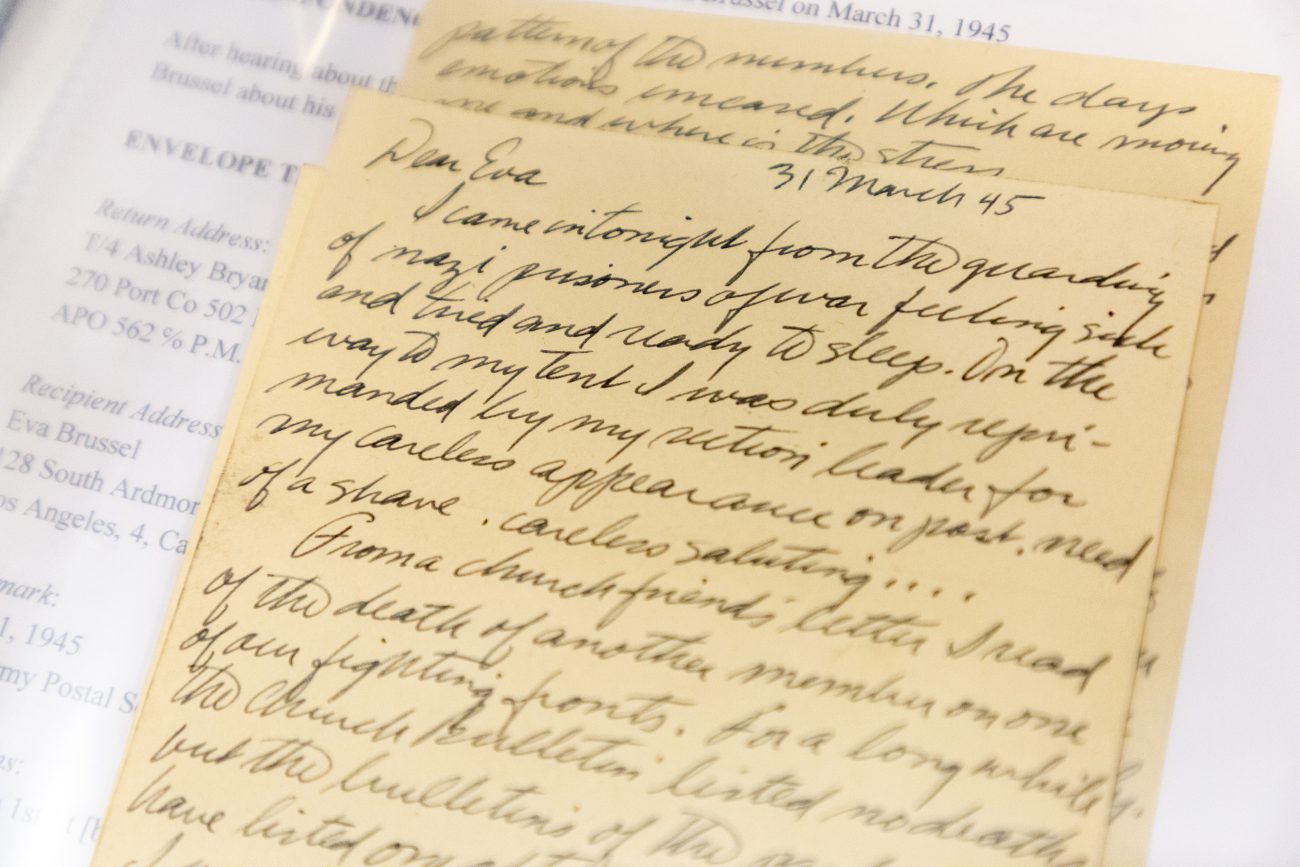 Brussel on March 31, 1945
After hearing about th
Brussel about his
ENVELOPE T
Return Address:
T/4 Ashley Bryan
270 Port Co 502
APO 562 % P.M.
Recipient Address
Eva Brussel
128 South Ardmor
os Angeles, 4, Ca
mark:
1, 1945
my Postal S
pattern of the numbers. The days
emotions smeared. Which are moving
me and where is the stress
Dear Eva
31 March 45
I came in tonight from the guarding
of nazi prisoners of war feeling sick
and tired and ready to sleep. On the
way to my tent I was duly repri-
manded by my section leader for
my careless appearance on post. need
of a shave. careless saluting....
From a church friend's letter I read
of the death of another member on one
of our fighting fronts. For a long while
the Church Bulletin listed no deaths
but the bulletins of the
have listed